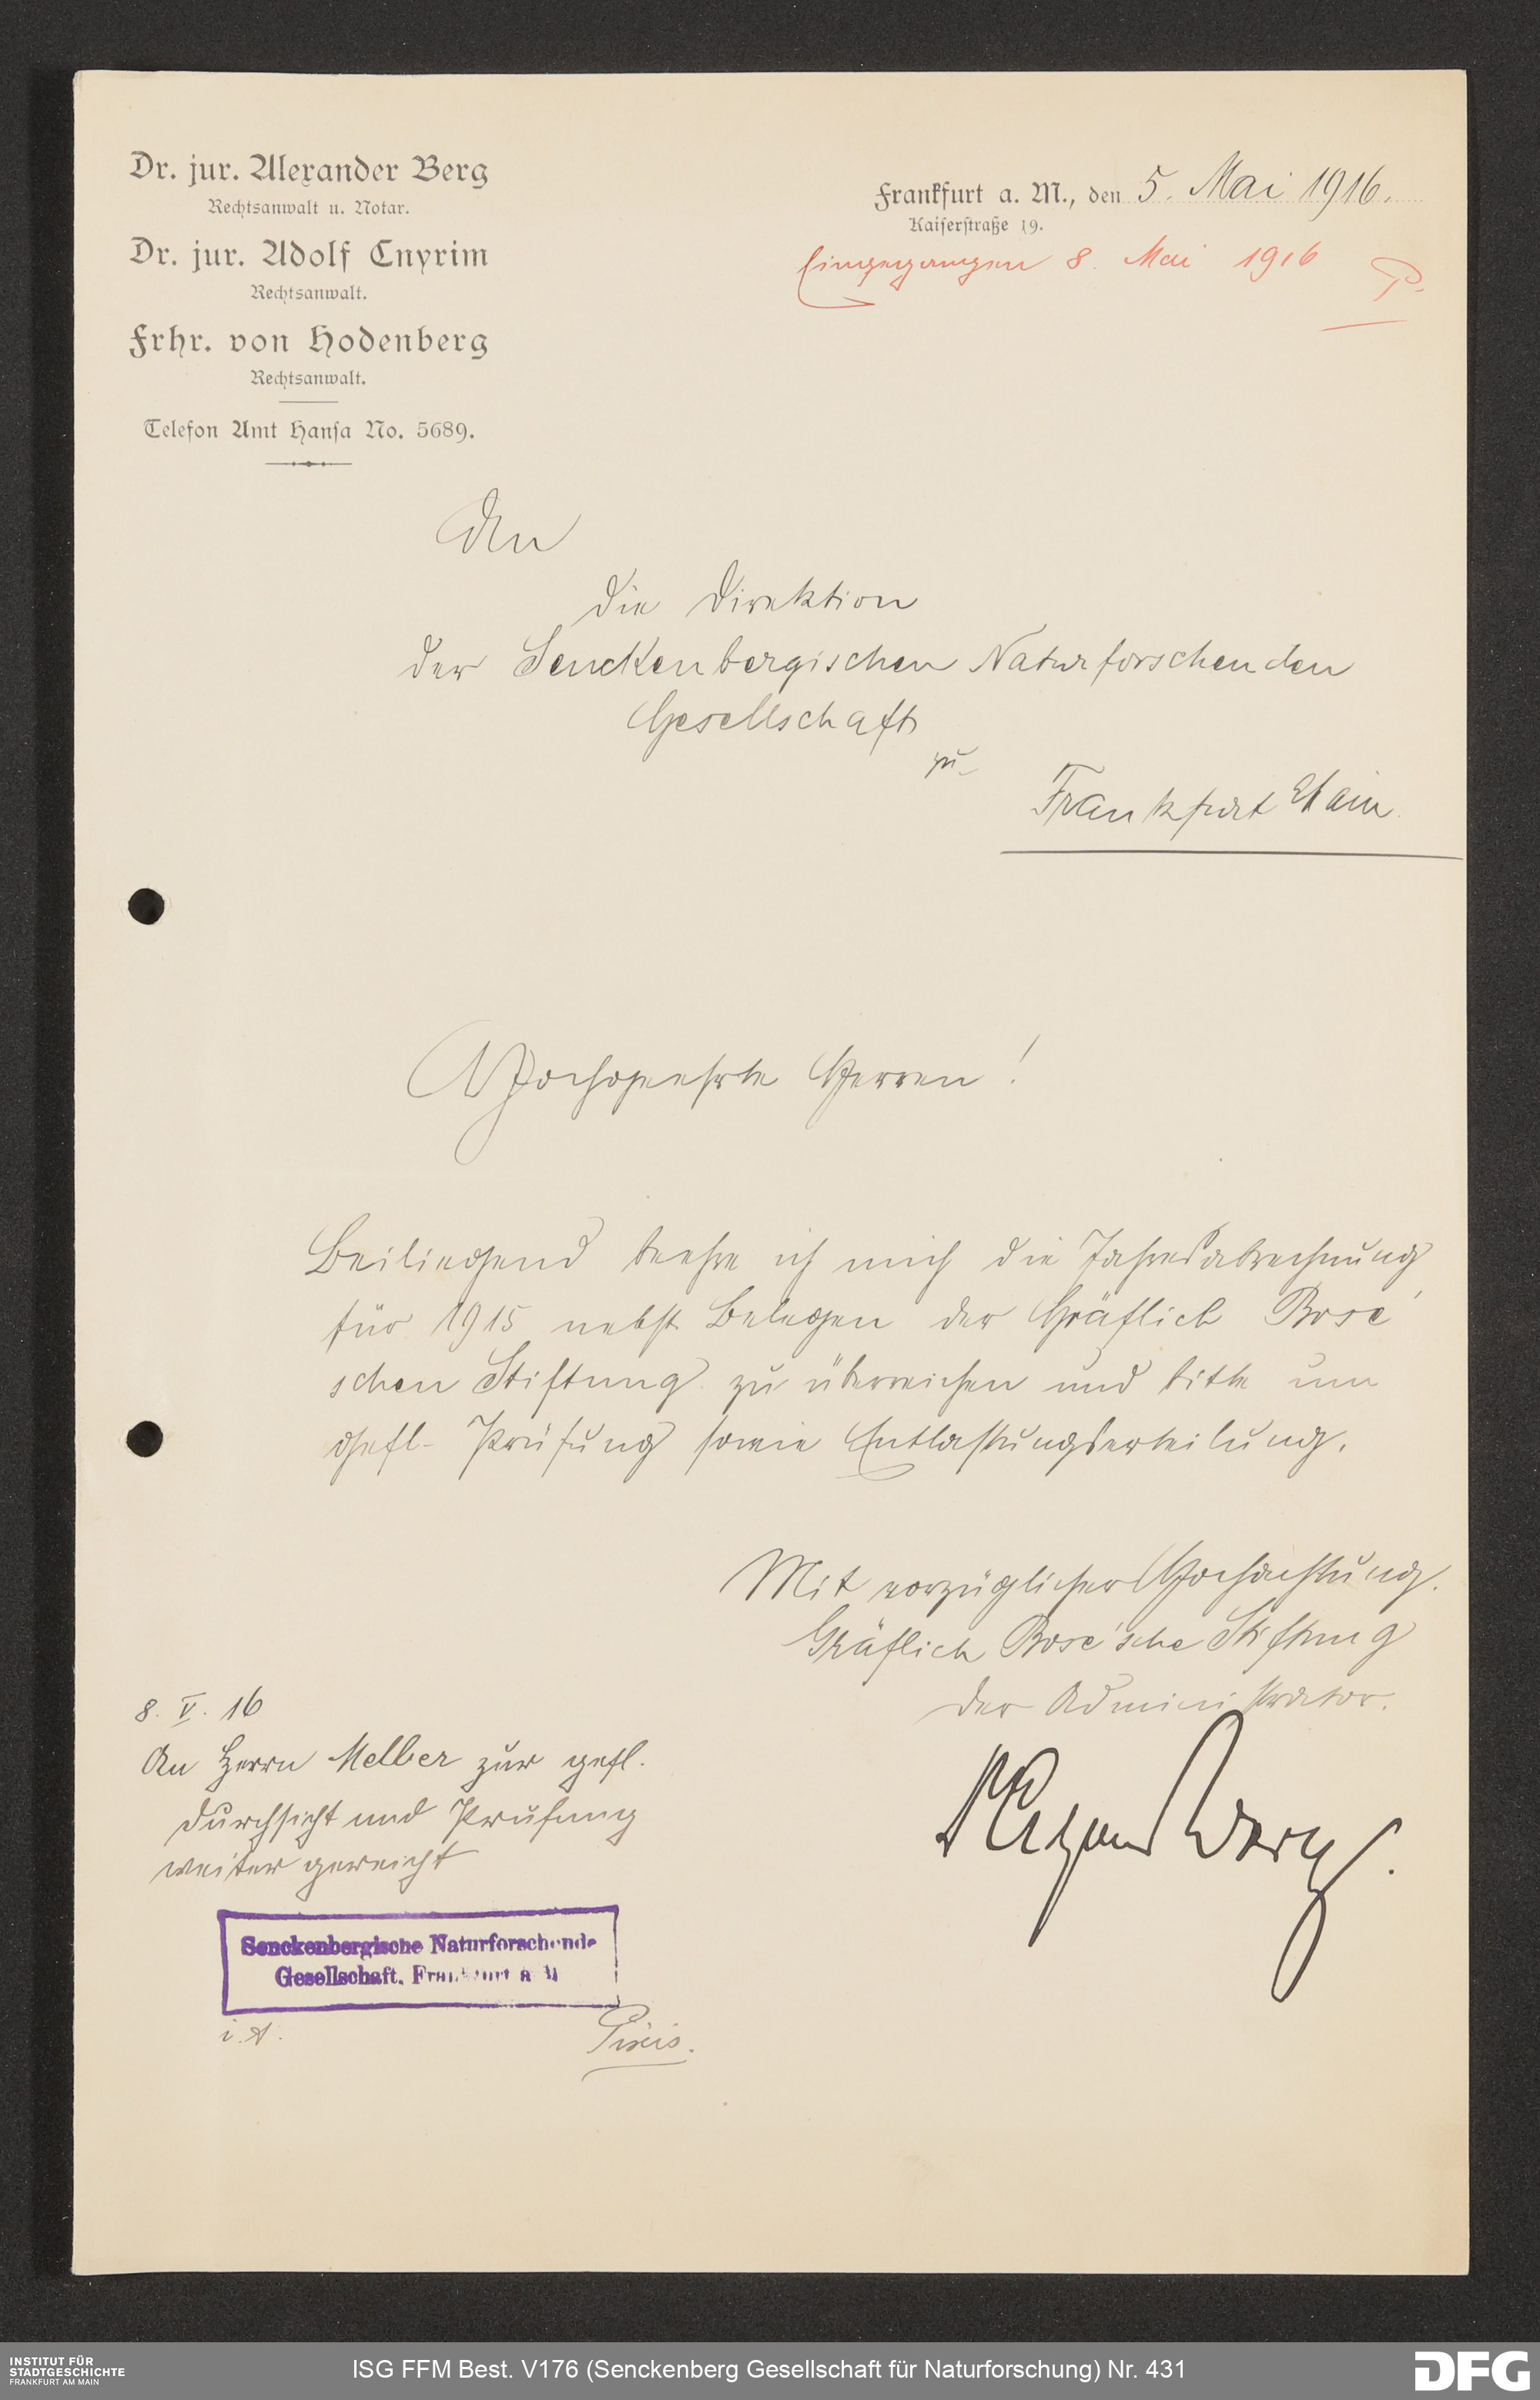 Dr. jur. Alexander Berg
Rechtsanwalt u. Notar.
Dr. jur. Adolf Cnyrim
Rechtsanwalt.
Frhr. von Hodenberg
Rechtsanwalt.
Telefon Amt Hansa No. 5689.
Frankfurt a. M., den 5. Mai 1916.
Kaiserstraße 19.
Eingegangen 8. Mai 1916 P.
An
die Direktion
der Senckenbergischen Naturforschenden
Gesellschaft
zu
Frankfurt Main.
Hochgeehrte Herren!
Beiliegend beehre ich mich die Jahresabrechnung
für 1915 nebst Belegen der Gräflich Bose'
schen Stiftung zu überreichen und bitte um
gefl. Prüfung sowie Entlastungserteilung.
Mit vorzüglicher Hochachtung.
Gräflich Bose'sche Stiftung
Der Administrator.
Alexander Berg.
8. V. 16
An Herrn Melber zur gefl.
Durchsicht und Prüfung
weiter gereicht
Senckenbergische Naturforschende
Gesellschaft, Frankfurt a. M.
i. A.
INSTITUT FÜR
STADTGESCHICHTE
FRANKFURT AM MAIN
ISG FFM Best. V176 (Senckenberg Gesellschaft für Naturforschung) Nr. 431
DFG